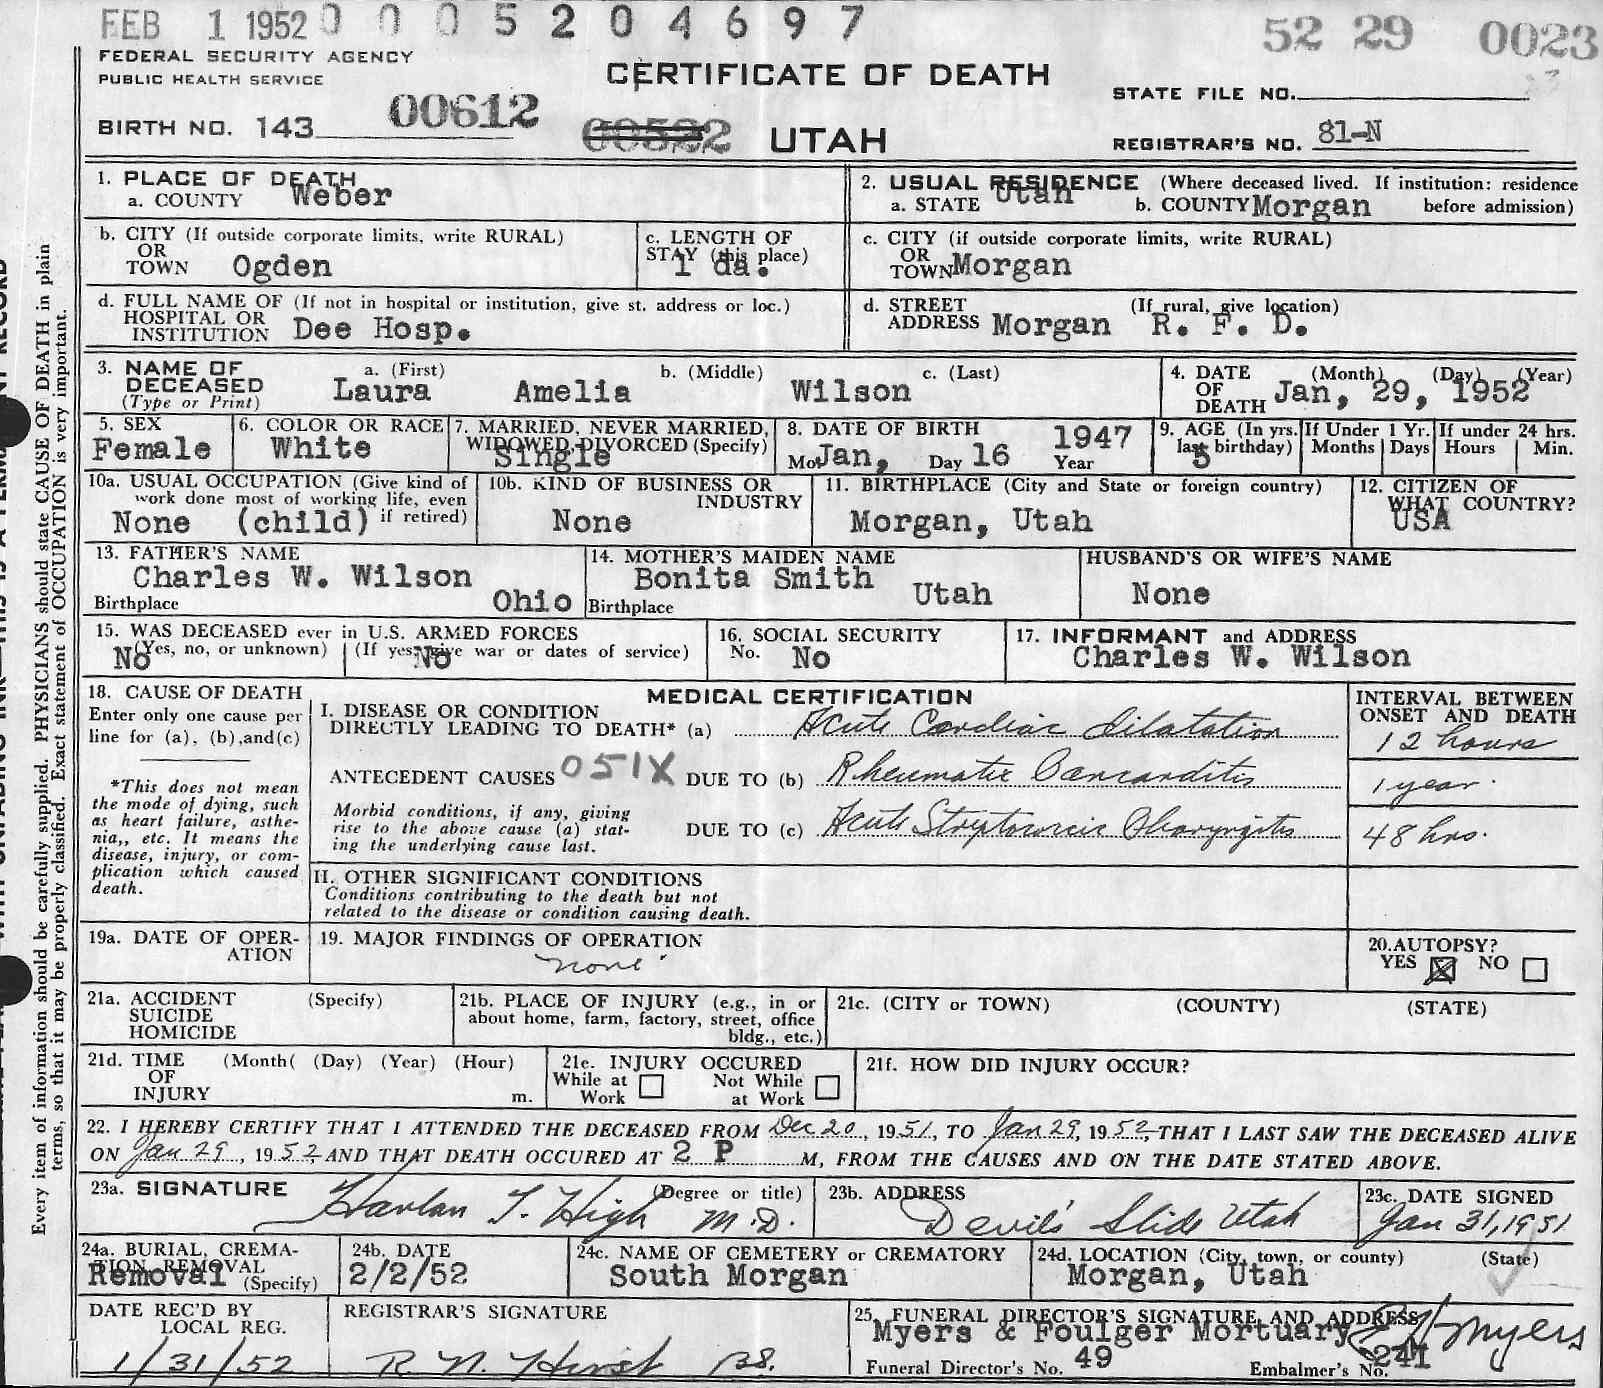 FEB 1 1952 0 0 0 5 2 0 4 6 9 7 52 29 0023
FEDERAL SECURITY AGENCY
PUBLIC HEALTH SERVICE
CERTIFICATE OF DEATH
STATE FILE NO.
BIRTH NO. 143 00612 00522 UTAH
REGISTRAR'S NO. 81-N
1. PLACE OF DEATH
a. COUNTY Weber
2. USUAL RESIDENCE (Where deceased lived. If institution: residence before admission)
a. STATE Utah b. COUNTY Morgan
b. CITY (If outside corporate limits, write RURAL)
OR
TOWN Ogden
c. LENGTH OF
STAY (this place)
1 da.
c. CITY (if outside corporate limits, write RURAL)
OR
TOWN Morgan
d. FULL NAME OF (If not in hospital or institution, give st. address or loc.)
HOSPITAL OR
INSTITUTION Dee Hosp.
d. STREET (If rural, give location)
ADDRESS Morgan R. F. D.
3. NAME OF a. (First) b. (Middle) c. (Last)
DECEASED Laura Amelia Wilson
(Type or Print)
4. DATE (Month) (Day) (Year)
OF
DEATH Jan, 29, 1952
5. SEX
Female
6. COLOR OR RACE
White
7. MARRIED, NEVER MARRIED,
WIDOWED, DIVORCED (Specify)
Single
8. DATE OF BIRTH 1947
Mo Jan, Day 16 Year
9. AGE (In yrs. last birthday)
5
If Under 1 Yr.
Months Days
If under 24 hrs.
Hours Min.
10a. USUAL OCCUPATION (Give kind of
work done most of working life, even
if retired)
None (child)
10b. KIND OF BUSINESS OR
INDUSTRY
None
11. BIRTHPLACE (City and State or foreign country)
Morgan, Utah
12. CITIZEN OF
WHAT COUNTRY?
USA
13. FATHER'S NAME
Charles W. Wilson
Birthplace Ohio
14. MOTHER'S MAIDEN NAME
Bonita Smith
Birthplace Utah
HUSBAND'S OR WIFE'S NAME
None
15. WAS DECEASED ever in U.S. ARMED FORCES
(Yes, no, or unknown) (If yes, give war or dates of service)
No No
16. SOCIAL SECURITY
No. No
17. INFORMANT and ADDRESS
Charles W. Wilson
18. CAUSE OF DEATH
Enter only one cause per
line for (a), (b), and (c)
*This does not mean
the mode of dying, such
as heart failure, asthe-
nia,, etc. It means the
disease, injury, or com-
plication which caused
death.
MEDICAL CERTIFICATION
I. DISEASE OR CONDITION
DIRECTLY LEADING TO DEATH* (a) Acute Cardiac Dilatation
ANTECEDENT CAUSES 051X DUE TO (b) Rheumatic Pancarditis
Morbid conditions, if any, giving
rise to the above cause (a) stat-
ing the underlying cause last.
DUE TO (c) Acute Streptococcic Pharyngitis
INTERVAL BETWEEN
ONSET AND DEATH
12 hours
1 year.
48 hrs.
II. OTHER SIGNIFICANT CONDITIONS
Conditions contributing to the death but not
related to the disease or condition causing death.
19a. DATE OF OPER-
ATION
19. MAJOR FINDINGS OF OPERATION
"none"
20. AUTOPSY?
YES NO
21a. ACCIDENT (Specify)
SUICIDE
HOMICIDE
21b. PLACE OF INJURY (e.g., in or
about home, farm, factory, street, office
bldg., etc.)
21c. (CITY or TOWN) (COUNTY) (STATE)
21d. TIME (Month( (Day) (Year) (Hour)
OF
INJURY m.
21e. INJURY OCCURED
While at Work Not While at Work
21f. HOW DID INJURY OCCUR?
22. I HEREBY CERTIFY THAT I ATTENDED THE DECEASED FROM Dec 20, 1951, TO Jan 29, 1952, THAT I LAST SAW THE DECEASED ALIVE
ON Jan 29, 1952, AND THAT DEATH OCCURED AT 2 P M, FROM THE CAUSES AND ON THE DATE STATED ABOVE.
23a. SIGNATURE (Degree or title)
Harlan T. High M.D.
23b. ADDRESS
Devil's Slide Utah
23c. DATE SIGNED
Jan 31, 1951
24a. BURIAL, CREMA-
TION, REMOVAL
Removal (Specify)
24b. DATE
2/2/52
24c. NAME OF CEMETERY or CREMATORY
South Morgan
24d. LOCATION (City, town, or county) (State)
Morgan, Utah
DATE REC'D BY
LOCAL REG.
1/31/52
REGISTRAR'S SIGNATURE
R. N. Hirst
25. FUNERAL DIRECTOR'S SIGNATURE AND ADDRESS
Myers & Foulger Mortuary Myers
Funeral Director's No. 49 Embalmer's No. 241
Every item of information should be carefully supplied. PHYSICIANS should state CAUSE OF DEATH in plain
terms, so that it may be properly classified. Exact statement of OCCUPATION is very important.